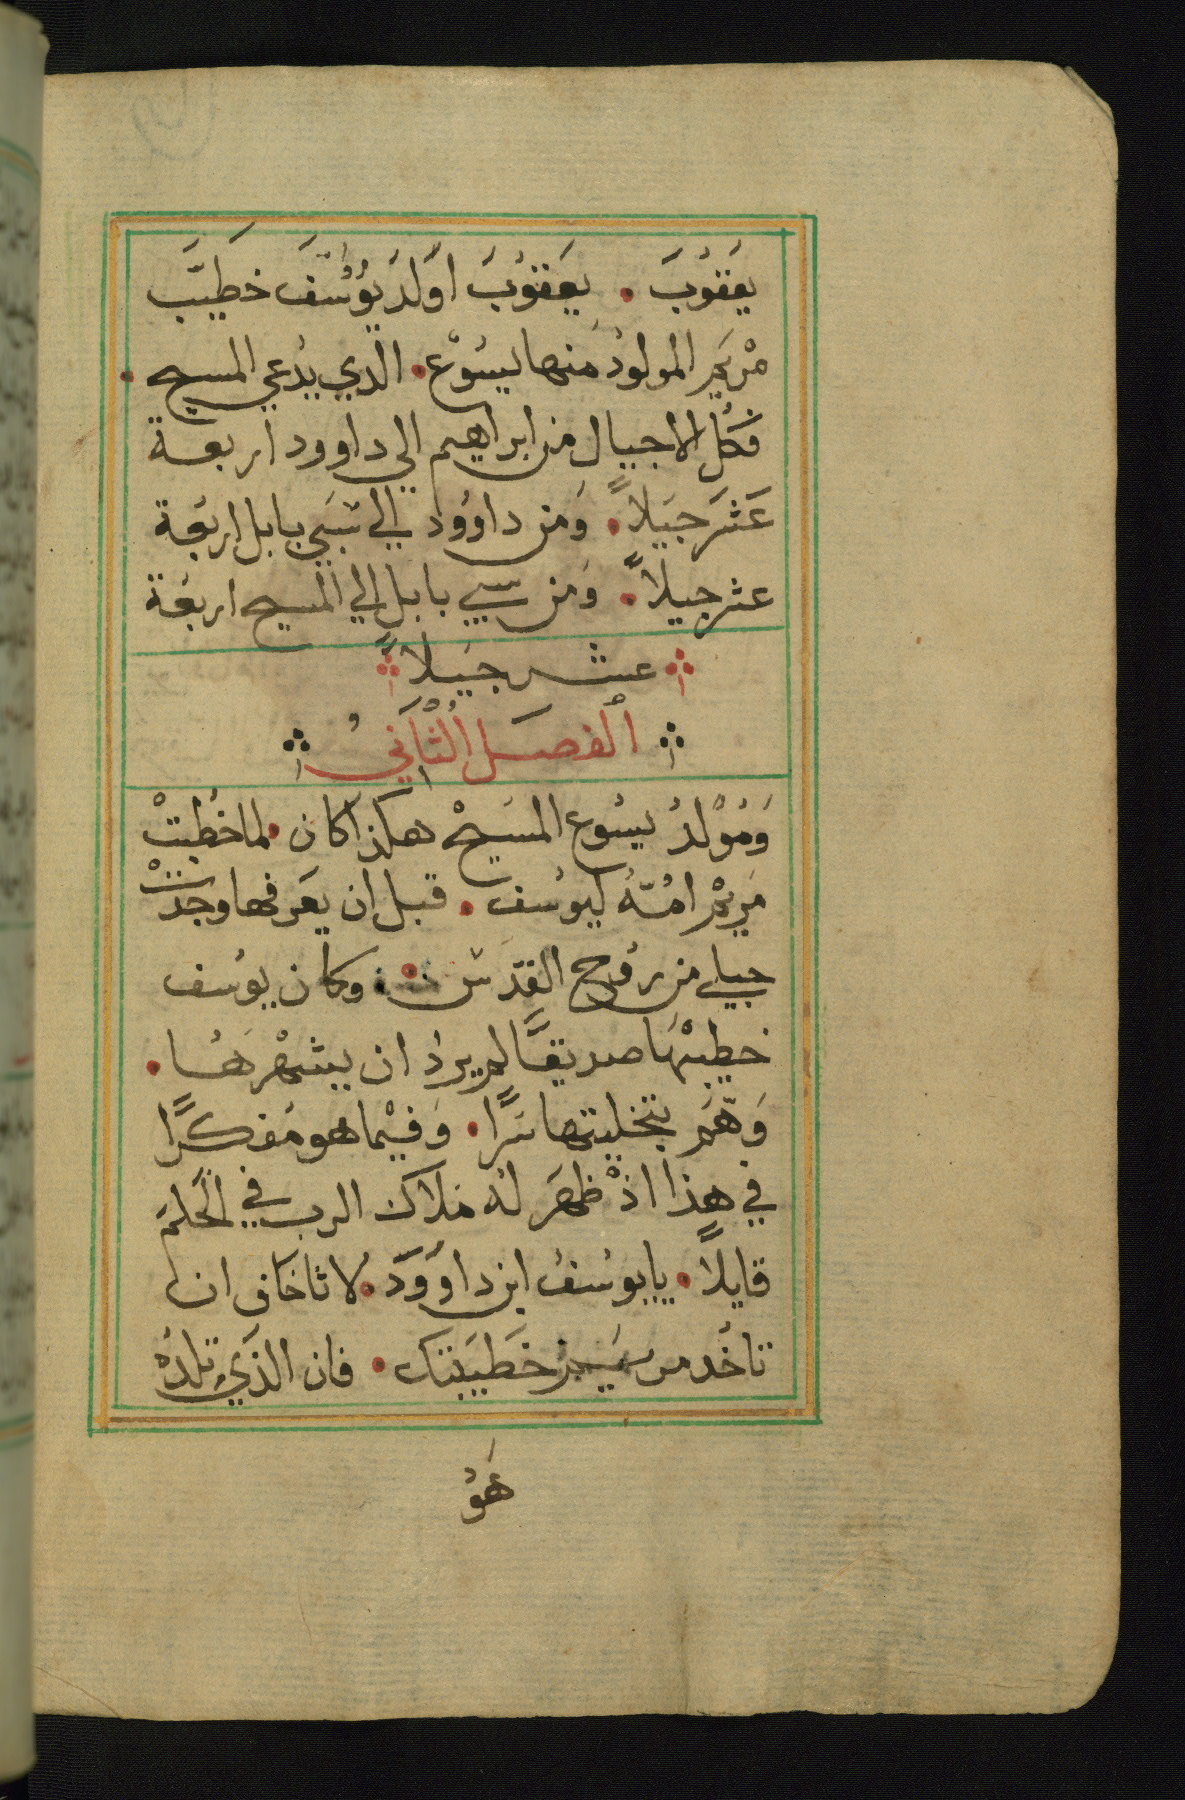 يَعَقوُبَ . يعَقوُبَ اوَلدَ يوُسُفَ خطَيَبَ
مْريَم المولودُ مَنها يسُوْع . الدي يدُعي المسيح .
فكَلُ الاجيال من ابراهيم الي داوود اربعة
عَشَر جيَلاً . وَمن داووُد الي سَبَي بابل اربَعة
عشر جيلاً . وَمن سبي بابل الي المسيح اربعَة
عشر جيَلاً
الفصَل الثَاَني
وَموُلدُ يسُوع المسَيحْ هكذا كان . لما خُطبتْ
مَريمْ امُهُ ليوسُف . قبل ان يعَرفها وجدَتْ
حبلي من رفُح القدَس . وكان يوسُف
خطيبْهَا صديقاً لم يردُ ان يشهْرهَا .
وَهَم بتخليتها سَراً . وَفيْما هو مَفكرًا
في هذا اذْ ظهَر له مَلاك الرب في الحَلم
قايلاً . يا يوسُفُ ابن داوُودَ . لا تاخاف ان
تاخُد مريم خطَيَبتك . فان الذَي تلدُه
هَوُ